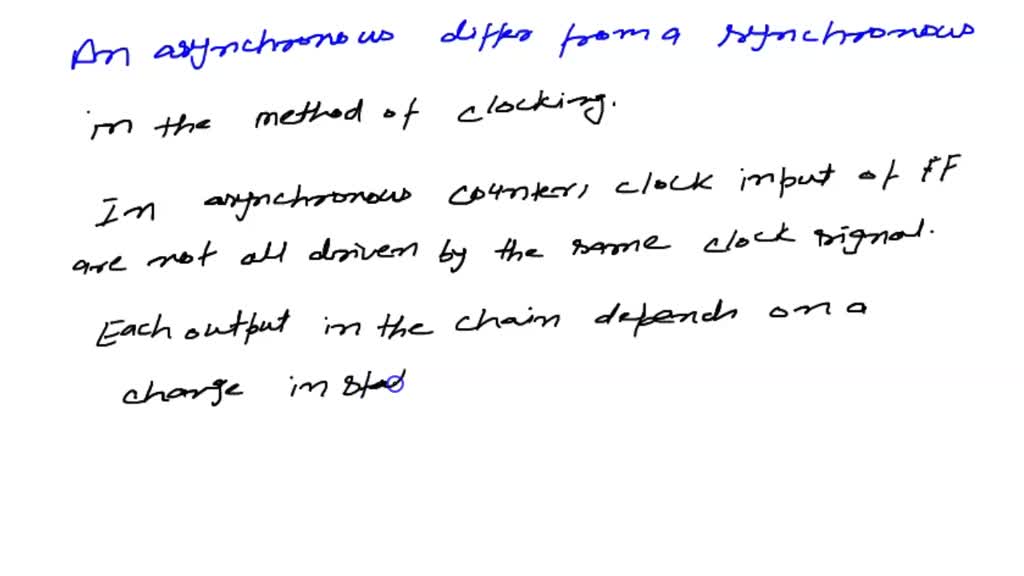 An asynchronous differ from a synchronous
in the method of clocking.
In asynchronous counter, clock input of FF
are not all driven by the same clock signal.
Each output in the chain depends on a
change in sta